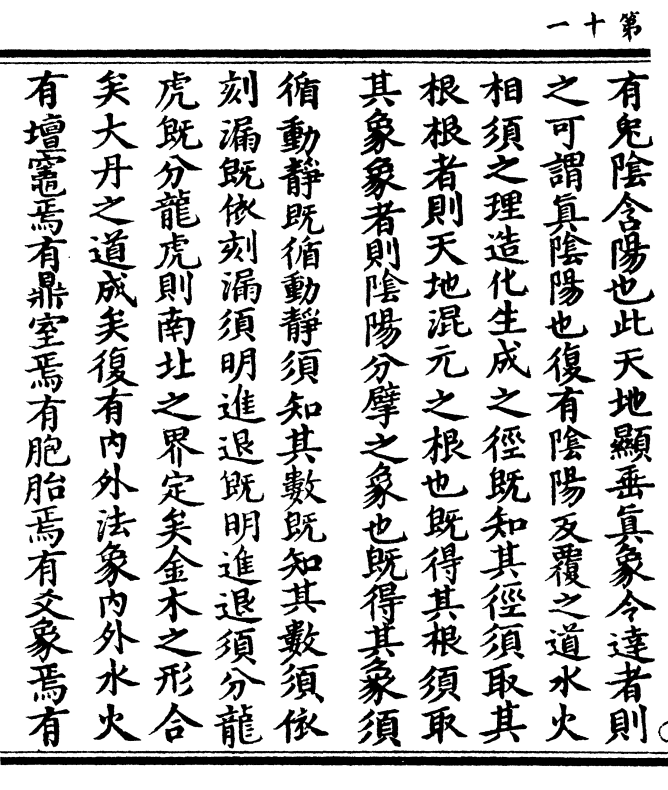 第十一
有兔陰含陽也此天地顯垂眞象令達者則
之可謂眞陰陽也復有陰陽反覆之道水火
相須之理造化生成之徑旣知其徑須取其
根根者則天地混元之根也旣得其根須取
其象象者則陰陽分擘之象也旣得其象須
循動靜旣循動靜須知其數旣知其數須依
刻漏旣依刻漏須明進退旣明進退須分龍
虎旣分龍虎則南北之界定矣金木之形合
矣大丹之道成矣復有內外法象內外水火
有壇竈焉有鼎室焉有胞胎焉有爻象焉有